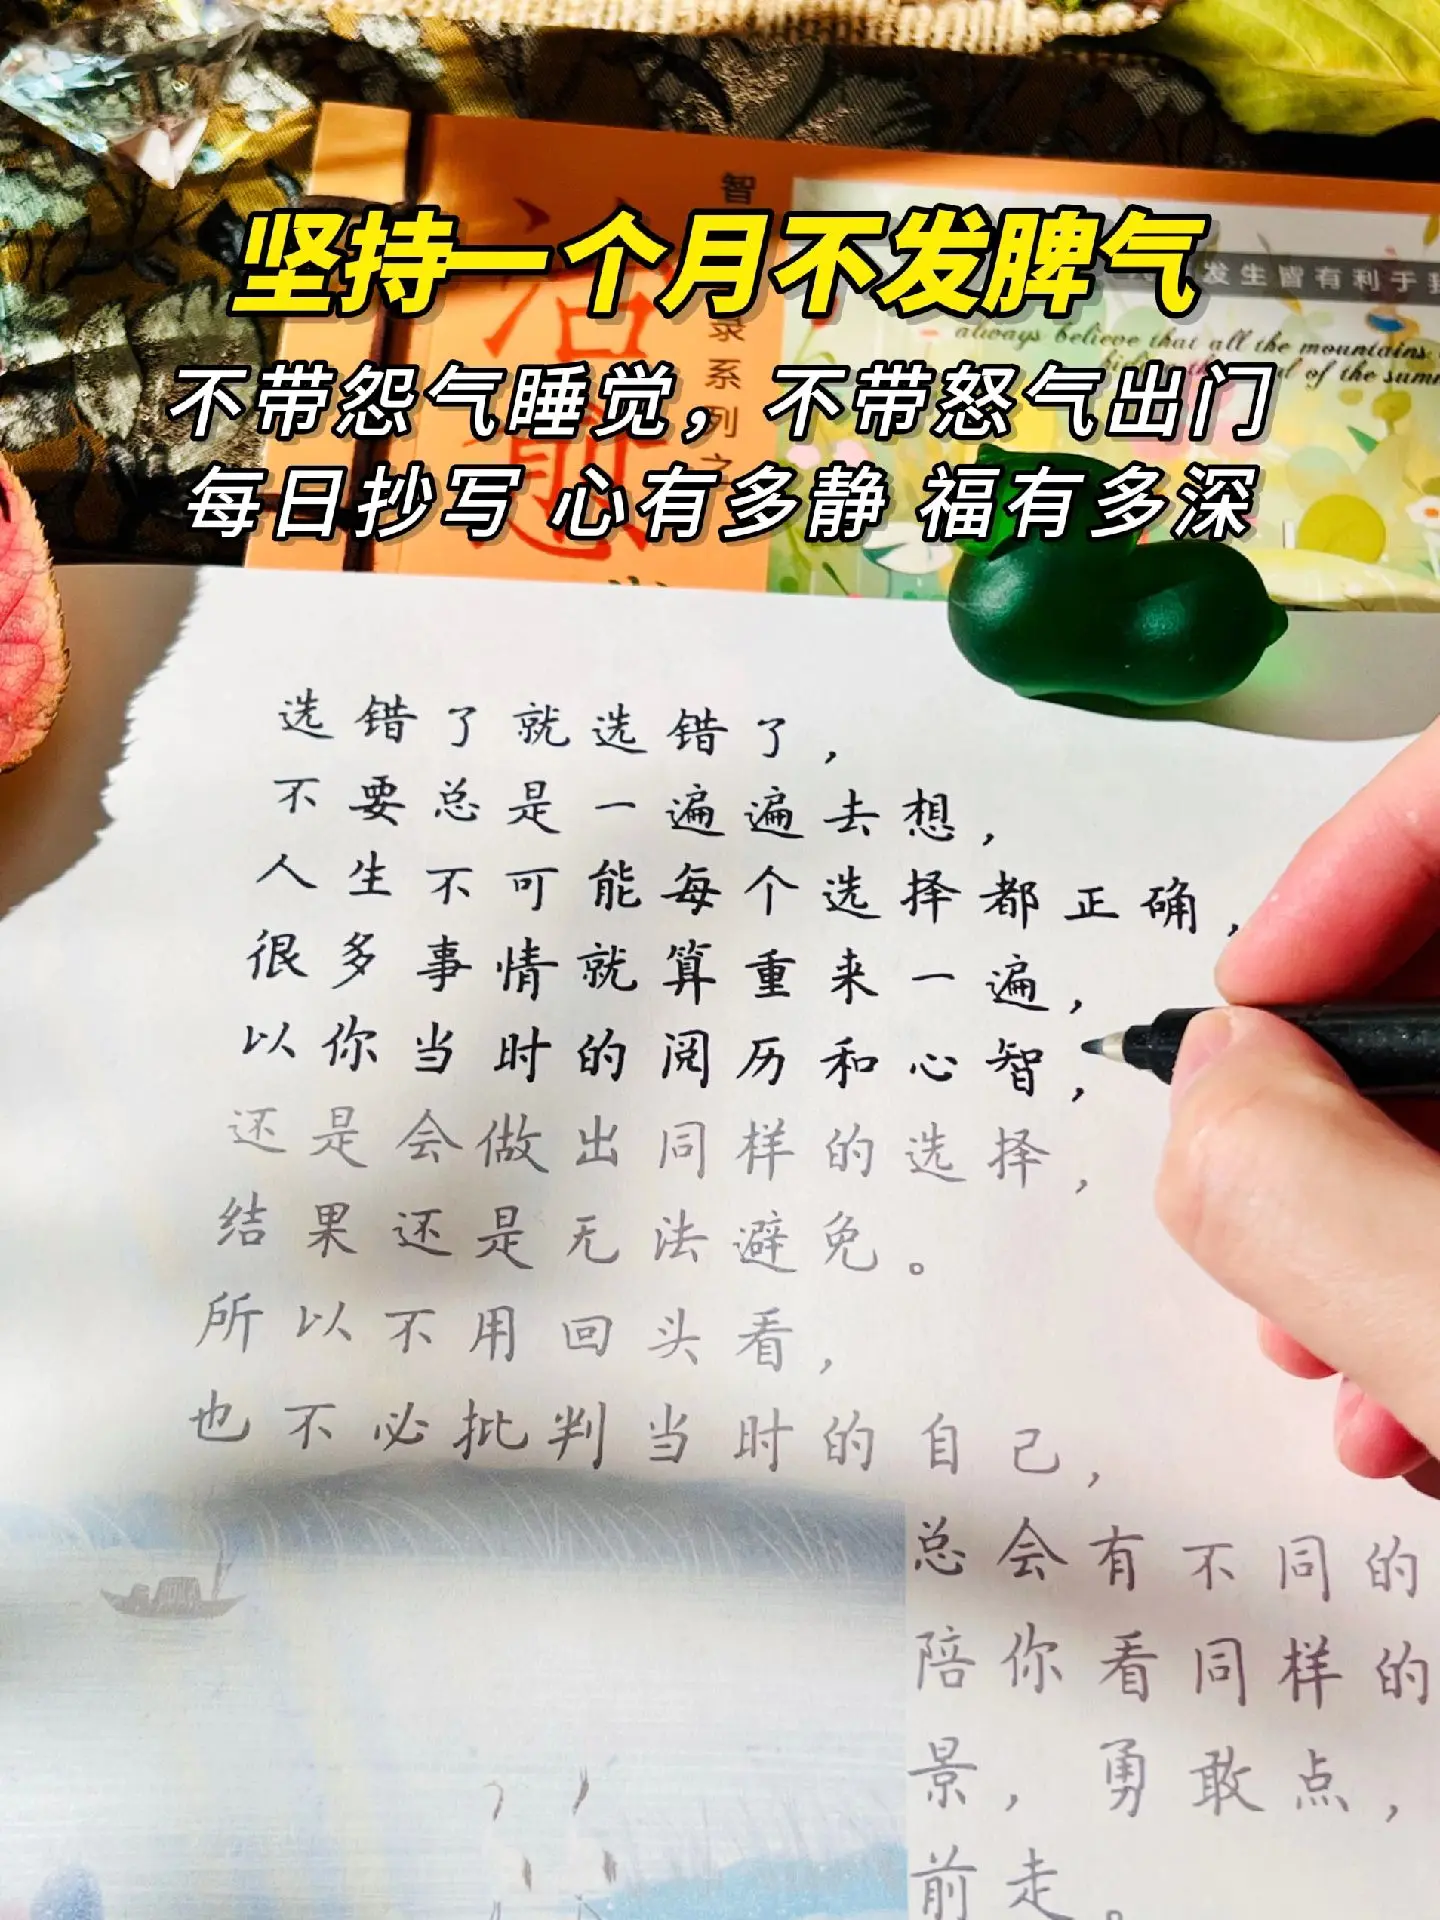 坚持一个月不发脾气
不带怨气睡觉，不带怒气出门
每日抄写 心有多静 福有多深
治愈
智
录系列之
发生皆有利于我
always believe that all the mountains
of the summ
选错了就选错了，
不要总是一遍遍去想，
人生不可能每个选择都正确，
很多事情就算重来一遍，
以你当时的阅历和心智，
还是会做出同样的选择，
结果还是无法避免。
所以不用回头看，
也不必批判当时的自己，
总会有不同的
陪你看同样的
景，勇敢点，
前走。